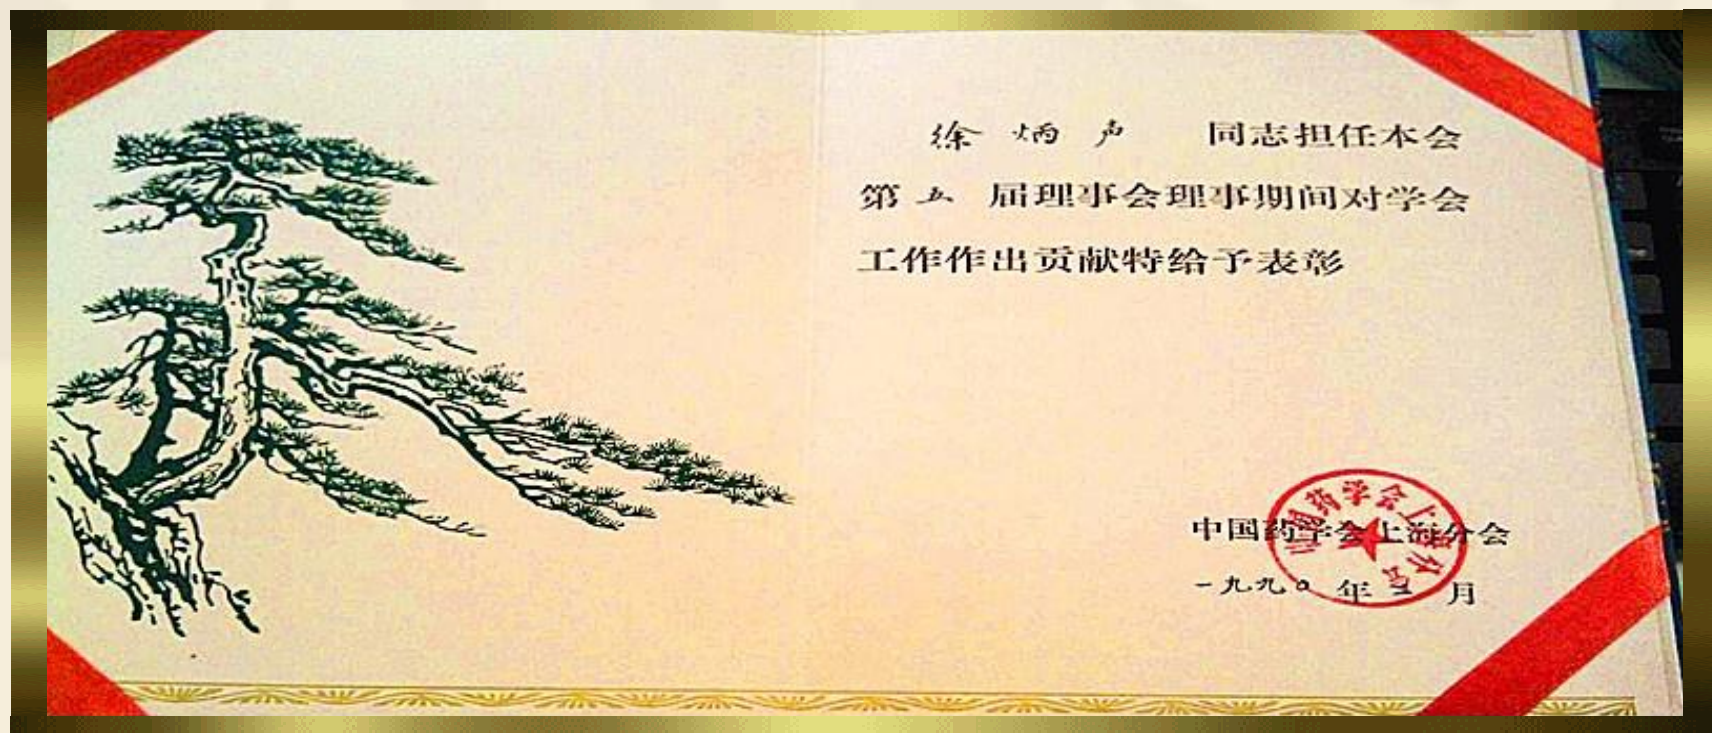 徐炳声 同志担任本会
第五届理事会理事期间对学会
工作作出贡献特给予表彰
中国药学会上海分会
一九九〇年 月
中国药学会上海分会